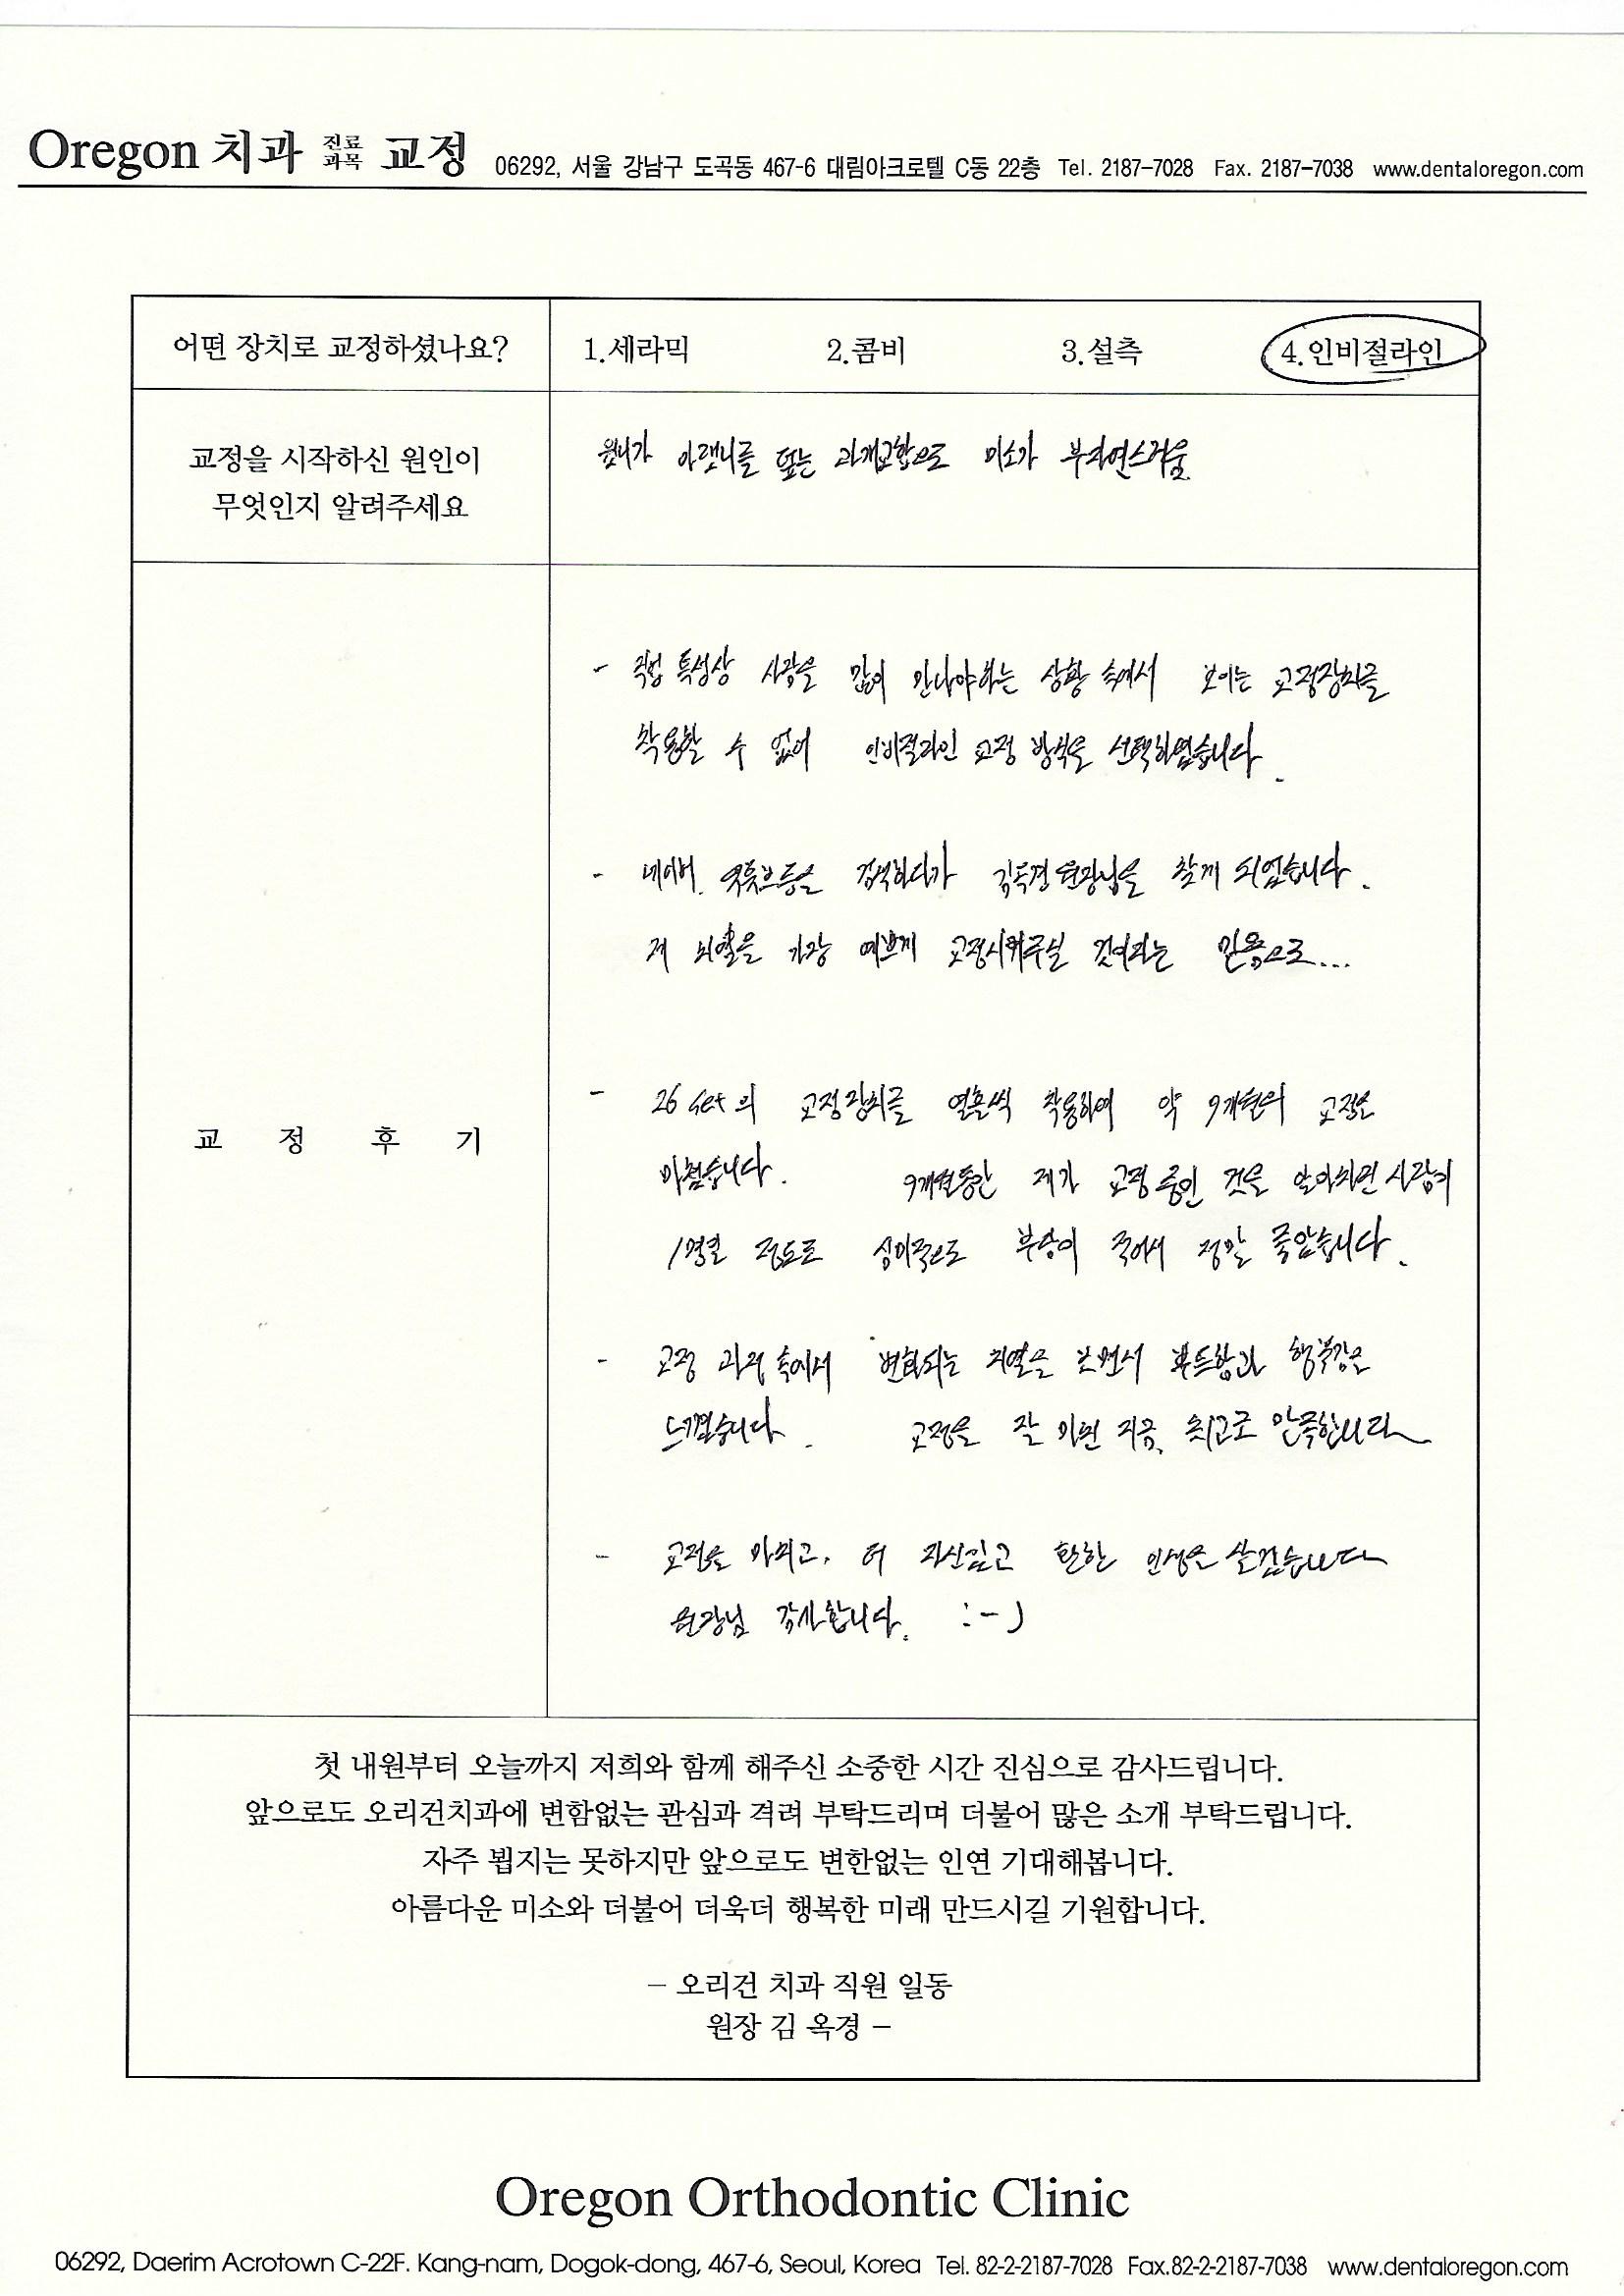 Oregon 치과 진료과목 교정 06292, 서울 강남구 도곡동 467-6 대림아크로텔 C동 22층 Tel. 2187-7028 Fax. 2187-7038 www.dentaloregon.com
어떤 장치로 교정하셨나요? 1.세라믹 2.콤비 3.설측 4.인비절라인
교정을 시작하신 원인이
무엇인지 알려주세요
윗니가 아랫니를 덮는 과개교합으로 미소가 부자연스러움
교 정 후 기
- 직업 특성상 사람을 많이 만나야하는 상황 속에서 보이는 교정장치를
착용할 수 없어 인비절라인 교정 방식을 선택하였습니다.
- 네이버, 유튜브등을 검색하다가 김옥경 원장님을 찾게 되었습니다.
제 치열을 가장 예쁘게 교정시켜주실 것이라는 믿음으로...
- 26 set의 교정장치를 열흘씩 착용하여 약 9개월의 교정을
마쳤습니다. 9개월동안 제가 교정 중인 것을 알아차린 사람이
1명일 정도로 심미적으로 부담이 적어서 정말 좋았습니다.
- 교정 과정 속에서 변화되는 치열을 보면서 뿌듯함과 행복감을
느꼈습니다. 교정을 잘 마친 지금, 최고로 만족합니다
- 교정을 마치고, 더 자신있고 환한 인생을 살겠습니다
원장님 감사합니다. :-)
첫 내원부터 오늘까지 저희와 함께 해주신 소중한 시간 진심으로 감사드립니다.
앞으로도 오리건치과에 변함없는 관심과 격려 부탁드리며 더불어 많은 소개 부탁드립니다.
자주 뵙지는 못하지만 앞으로도 변한없는 인연 기대해봅니다.
아름다운 미소와 더불어 더욱더 행복한 미래 만드시길 기원합니다.
- 오리건 치과 직원 일동
원장 김 옥경 -
Oregon Orthodontic Clinic
06292, Daerim Acrotown C-22F. Kang-nam, Dogok-dong, 467-6, Seoul, Korea Tel. 82-2-2187-7028 Fax.82-2-2187-7038 www.dentaloregon.com